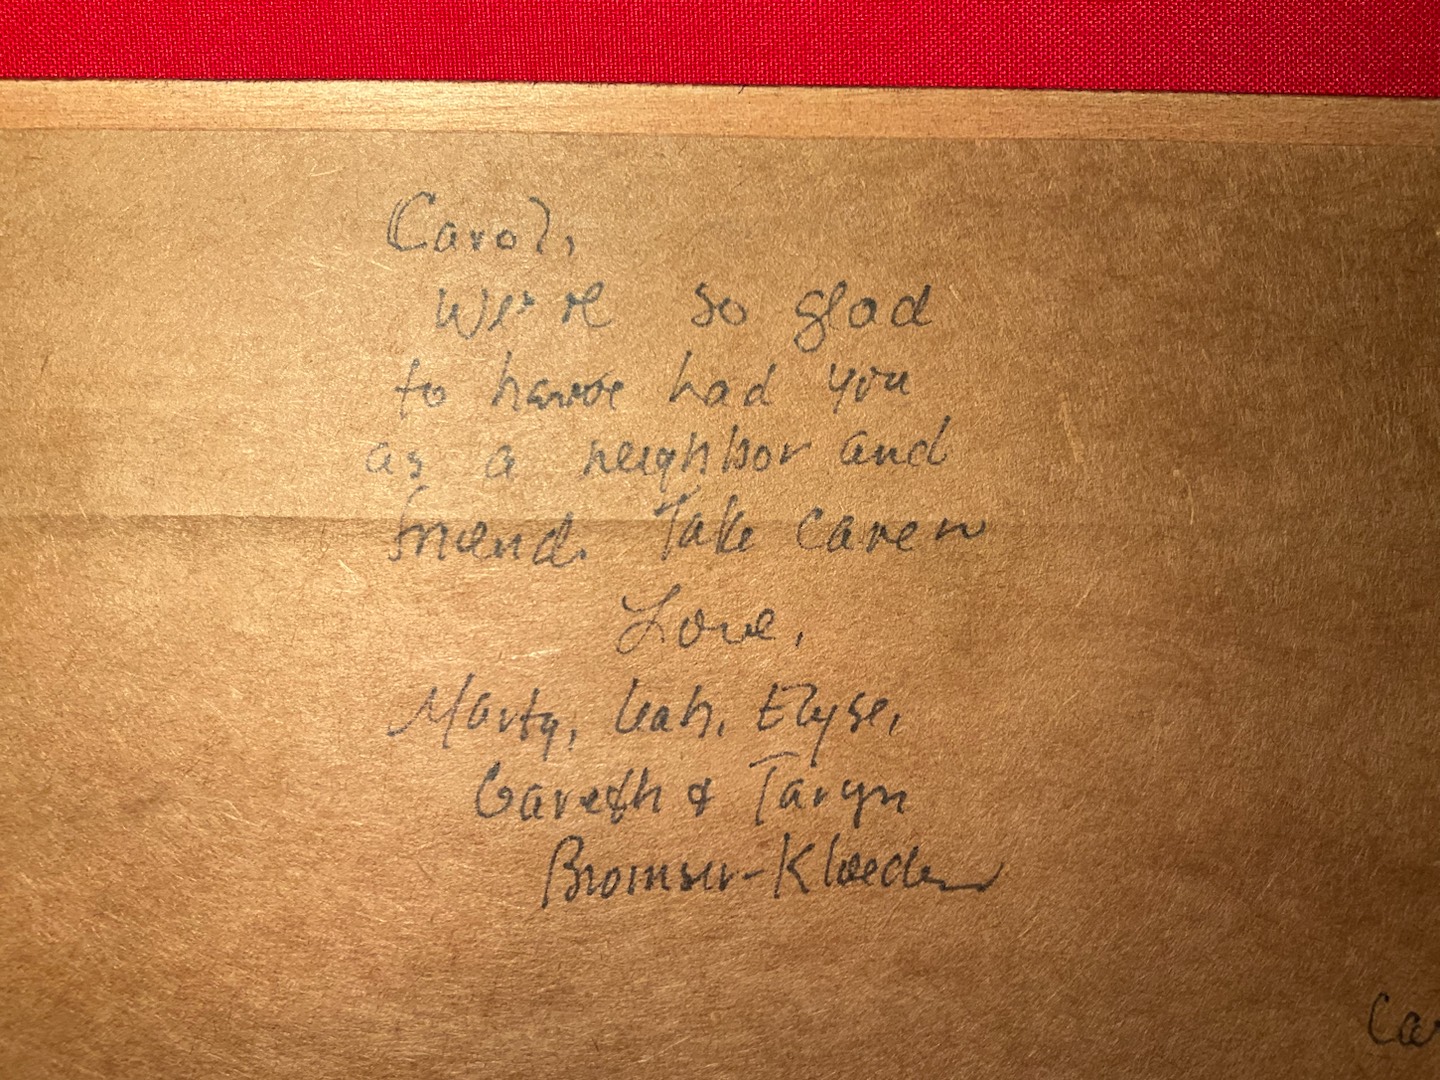 Carol,
We're so glad
to have had you
as a neighbor and
friend. Take care
Love,
Marty, Leah, Elyse,
Gareth & Taryn
Bromser-Kloeden
Ca